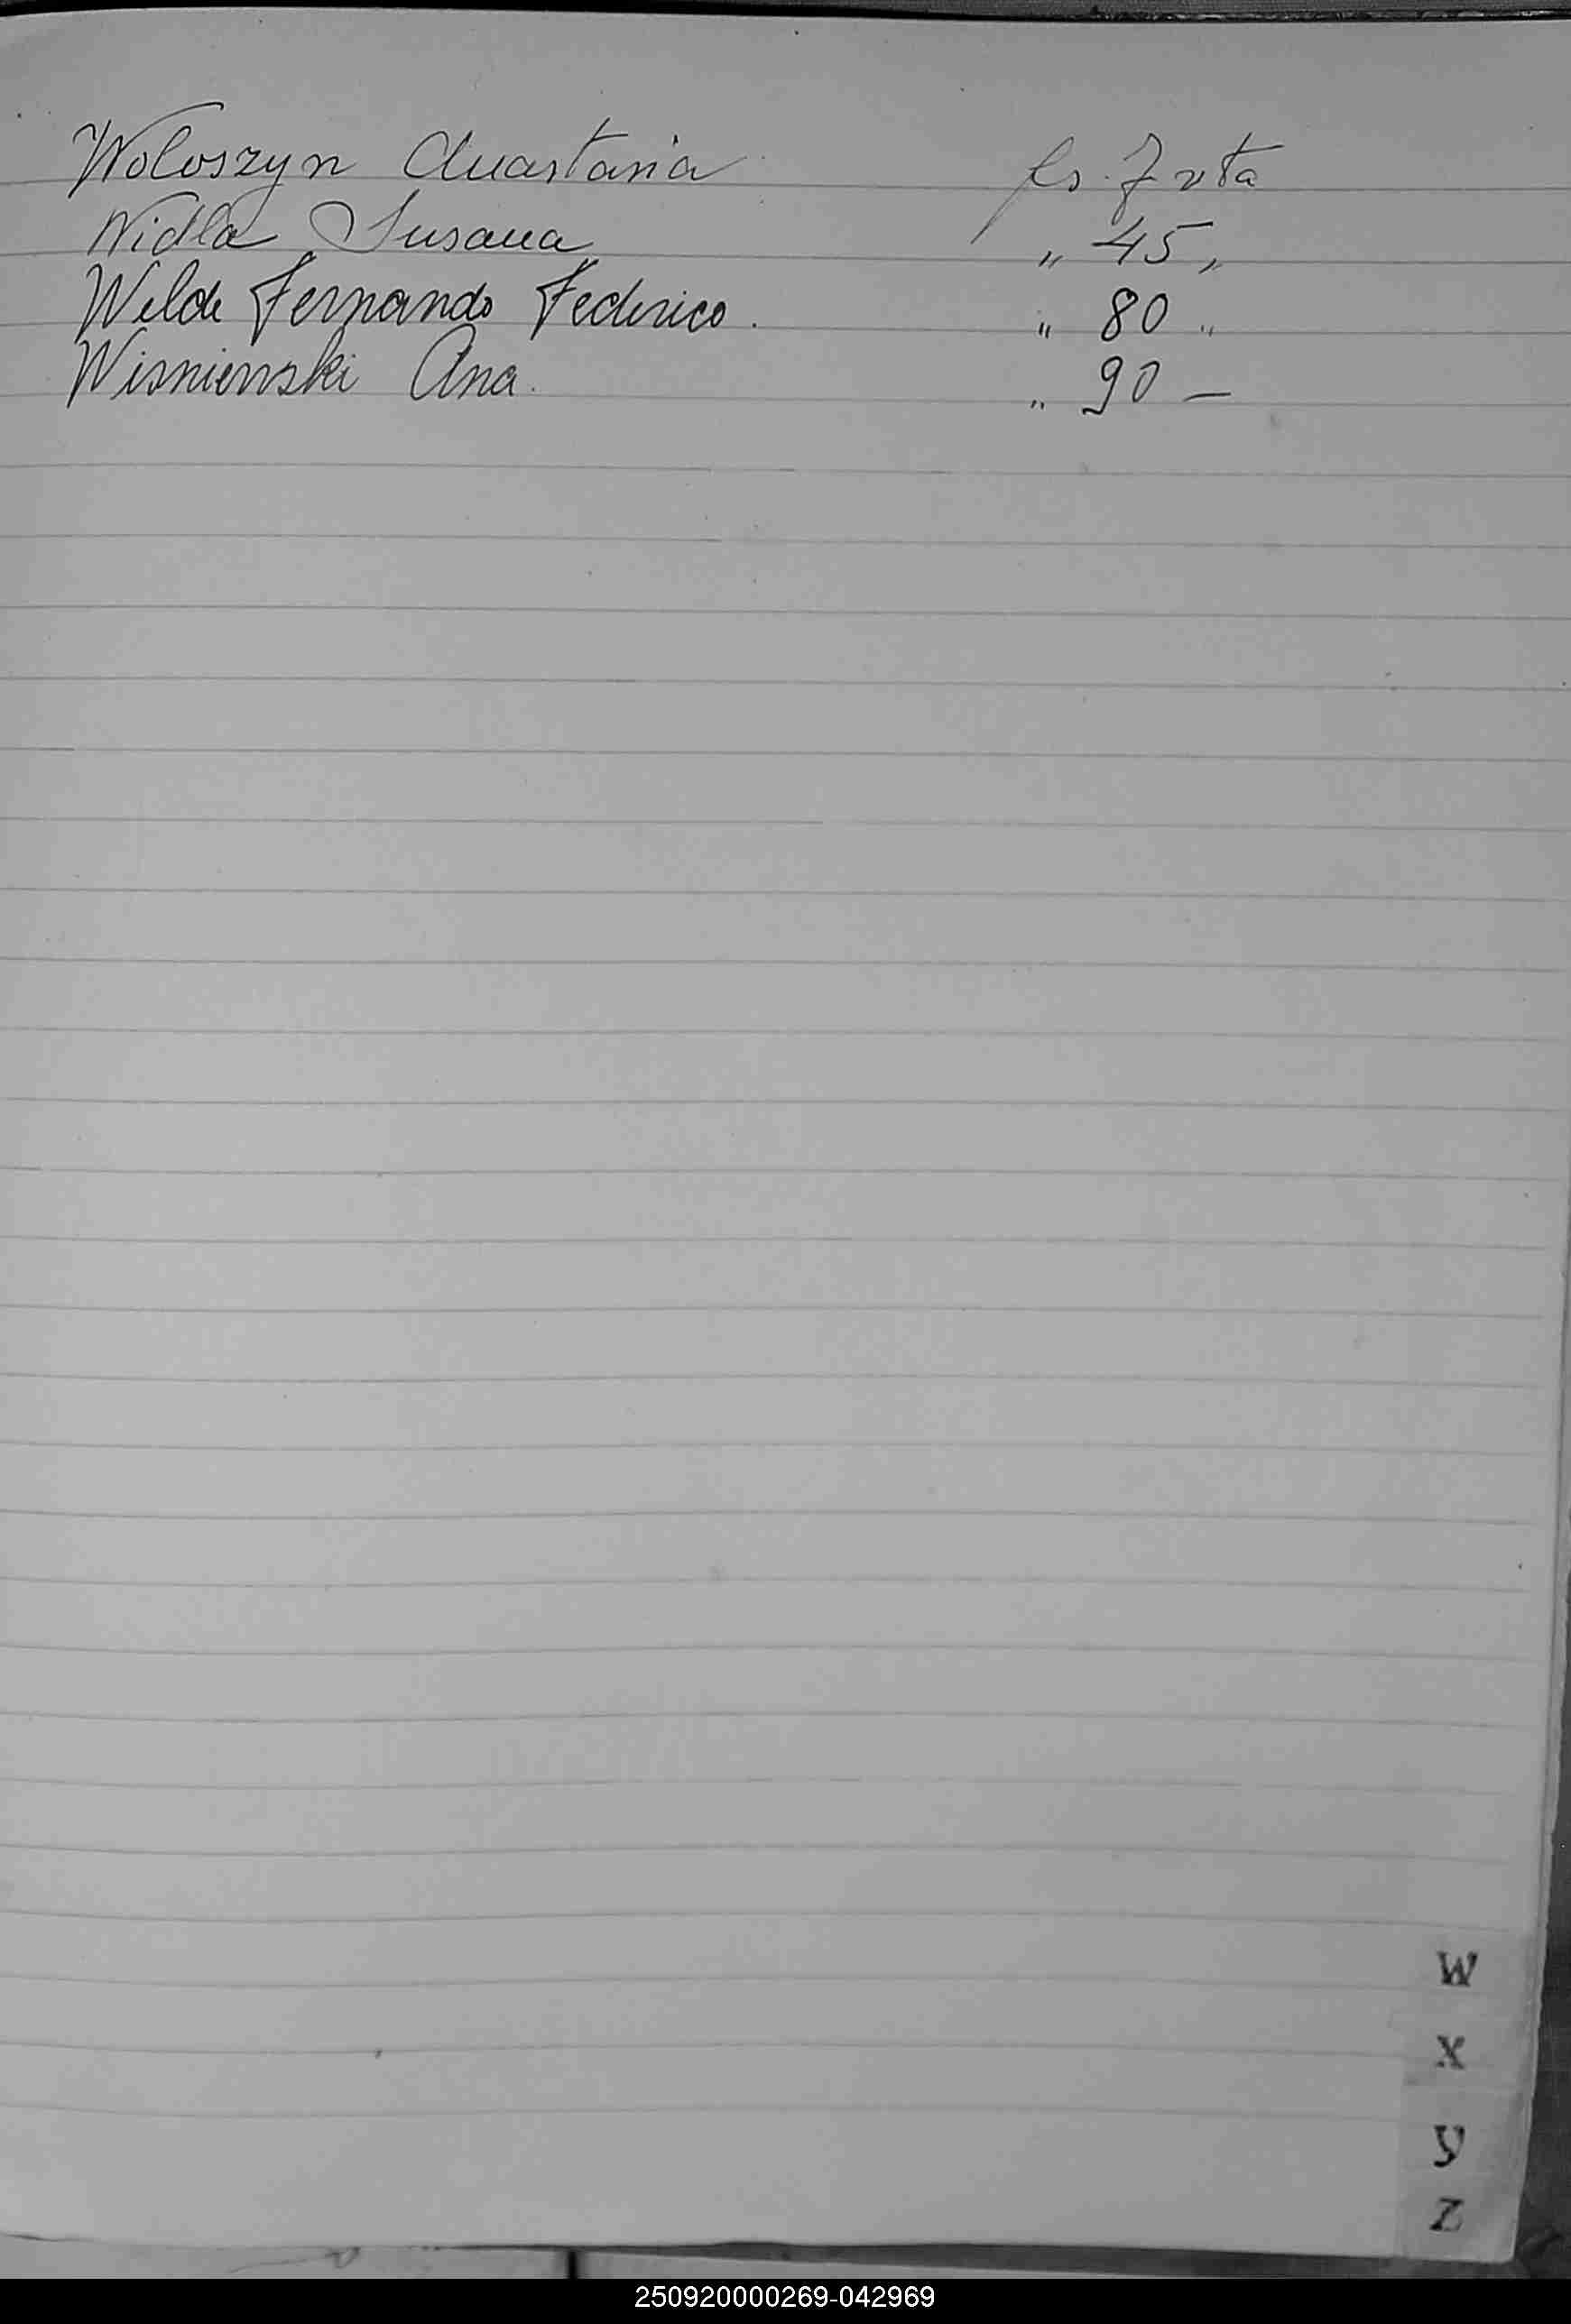 Woloszyn Anastasia fs. 7 vta
Widla Susana " 45 "
Welde Fernando Federico. " 80 "
Wisnienski Ana. " 90 —
W
X
y
Z
250920000269-042969